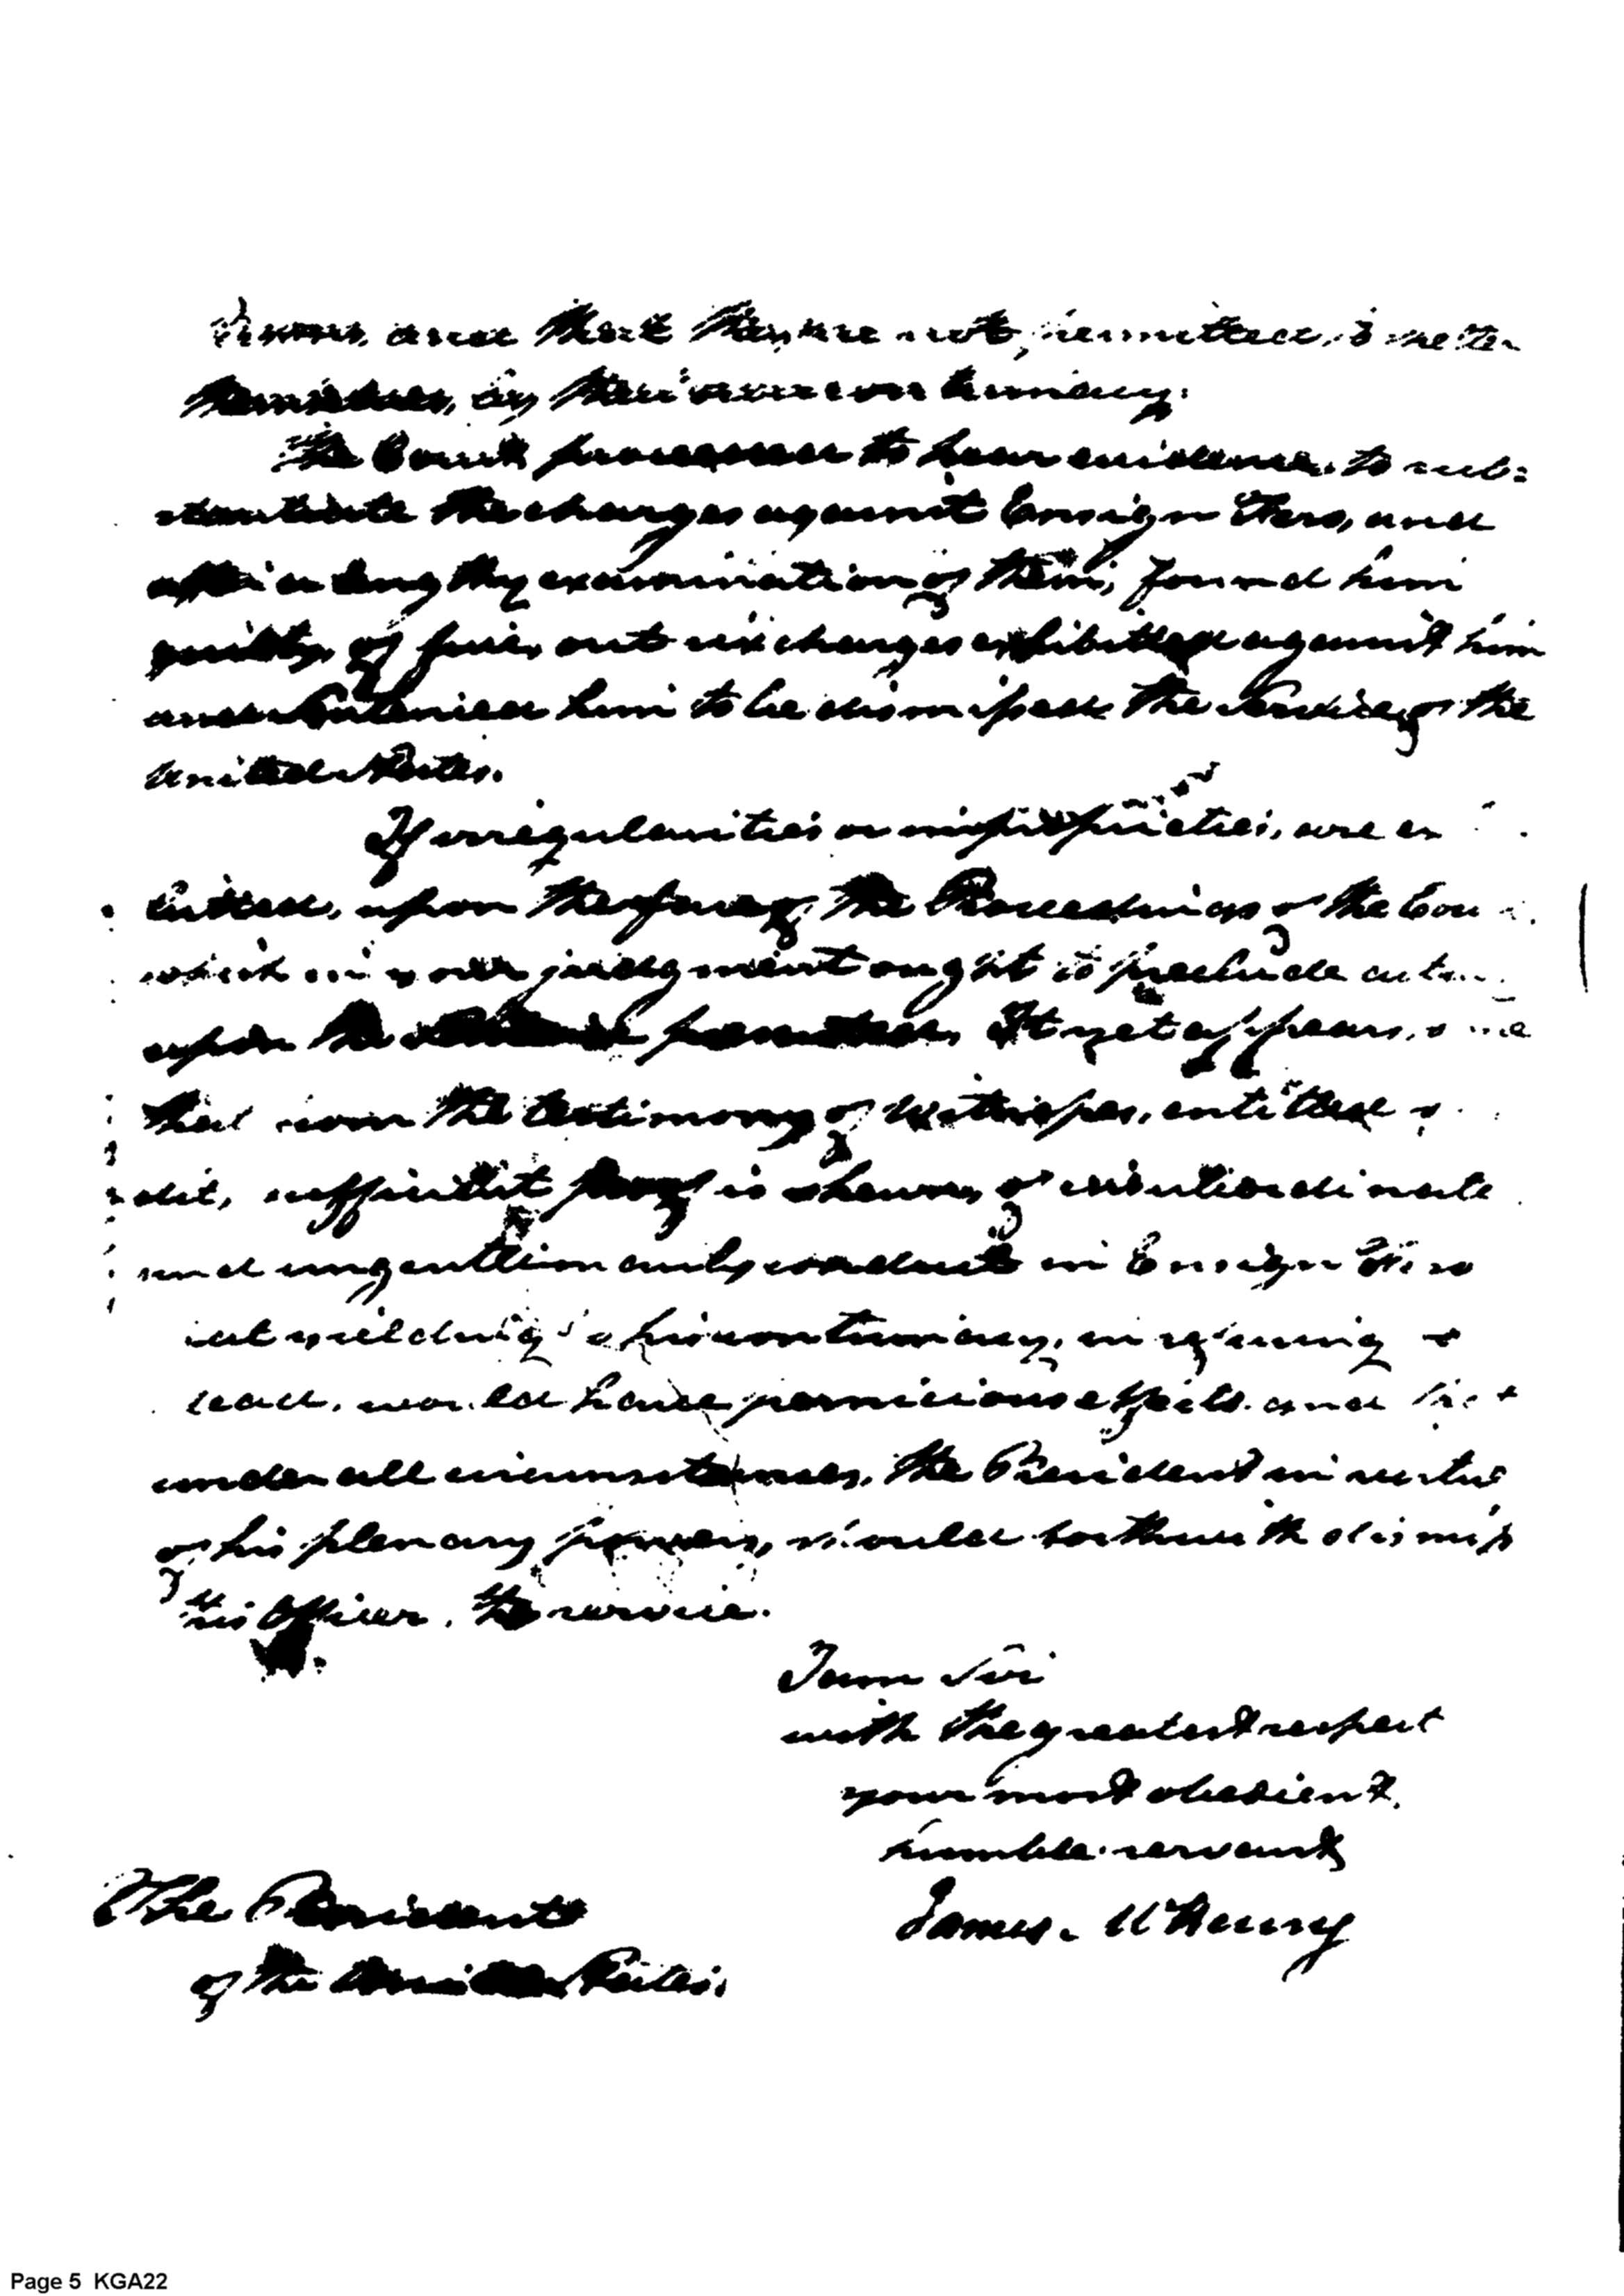 and that they are not permitted, to shelter
themselves, by their own contumacy.
The Court proceeded to hear evidence, to sub=
stantiate the charges against Ensign and
after a lengthy examination of them, found him
guilty, of five, out six charges exhibited against him
and sentenced him to be dismissed the service of the
United States.
If irregularities or improprieties, are ex
hibited, upon the face of the Proceedings of the Cou
which in your judgment ought to preclude
upon the It yet appears, to me
that from the testimony of Witnesses, entitled
dit, sufficient proof is shewn, of
and ungentlemanly conduct in Ensign
yielding to his contumacy, in refusing to
lead, would have pernicious effects. and that
under all circumstances, the President in virtue
of his plenary powers, should forthwith dismiss
this Officer, the service.
I am Sir
with the greatest respect
your most obedient.
humble servant
James McHenry
The President
of the United States.
Page 5 KGA22